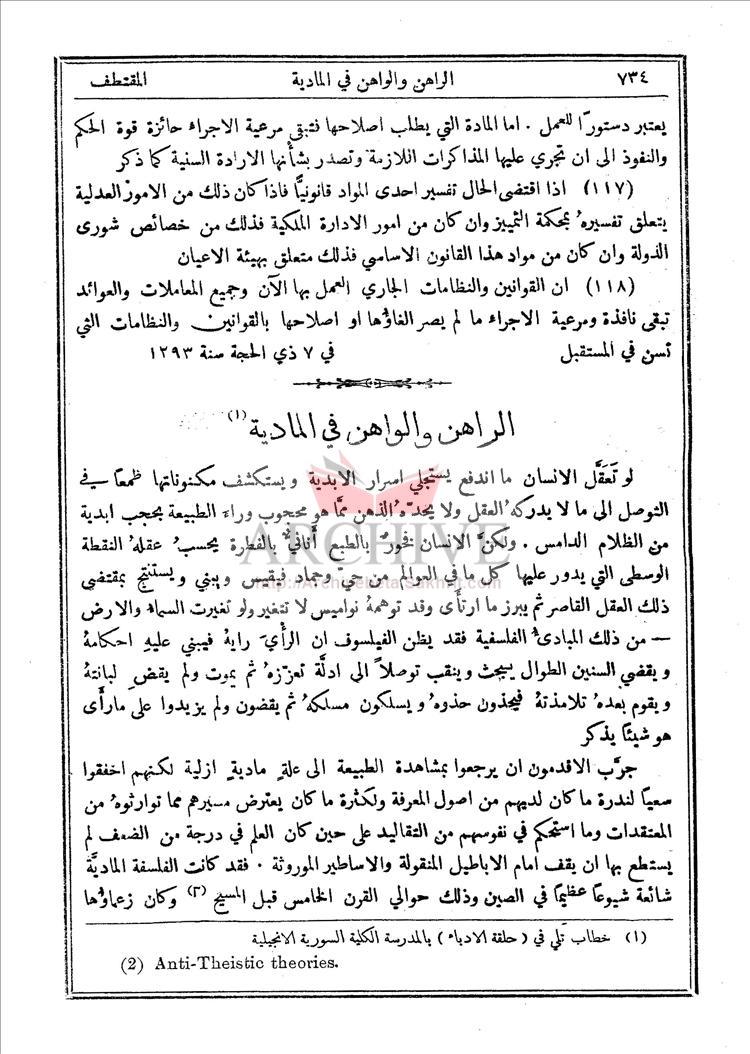 ٧٣٤ الراهن والواهن في المادية المقتطف
يعتبر دستورًا للعمل . اما المادة التي يطلب اصلاحها فتبقى مرعية الاجراء حائزة قوة الحكم
والنفوذ الى ان تجري عليها المذاكرات اللازمة وتصدر بشأنها الارادة السنية كما ذكر
(١١٧) اذا اقتضى الحال تفسير احدى المواد قانونيًّا فاذا كان ذلك من الامور العدلية
يتعلق تفسيرهُ بمحكمة التمييز وان كان من امور الادارة الملكية فذلك من خصائص شورى
الدولة وان كان من مواد هذا القانون الاساسي فذلك متعلق بهيئة الاعيان
(١١٨) ان القوانين والنظامات الجاري العمل بها الآن وجميع المعاملات والعوائد
تبقى نافذة ومرعية الاجراء ما لم يصر الغاؤها او اصلاحها بالقوانين والنظامات التي
تسن في المستقبل في ٧ ذي الحجة سنة ١٢٩٣
الراهن والواهن في المادية (١)
لو تَعَقَّل الانسان ما اندفع يستجلي اسرار الابدية ويستكشف مكنوناتها طمعًا في
التوصل الى ما لا يدركهُ العقل ولا يحدّهُ الذهن ممَّا هو محجوب وراء الطبيعة بحجب ابدية
من الظلام الدامس . ولكنَّ الانسان فخورٌ بالطبع أنانيٌّ بالفطرة يحسب عقلهُ النقطة
الوسطى التي يدور عليها كل ما في العوالم من حيّ وجماد فيقيس ويبني ويستنتج بمقتضى
ذلك العقل القاصر ثم يبرز ما ارتأى وقد توهمهُ نواميس لا تتغير ولو تغيرت السماء والارض
— من ذلك المبادئُ الفلسفية فقد يظن الفيلسوف ان الرأيَ رايهُ فيبني عليهِ احكامهُ
ويقضي السنين الطوال يبحث وينقب توصلاً الى ادلَّة تعزّزهُ ثم يموت ولم يقضِ لبانتهُ
ويقوم بعدهُ تلامذتهُ فيحذون حذوهُ ويسلكون مسلكهُ ثم يقضون ولم يزيدوا على ما رأى
هو شيئًا يذكر
جرَّب الاقدمون ان يرجعوا بمشاهدة الطبيعة الى علةٍ ماديةٍ ازلية لكنهم اخفقوا
سعيًا لندرة ما كان لديهم من اصول المعرفة ولكثرة ما كان يعترض مسيرهم مما توارثوهُ من
المعتقدات وما استحكم في نفوسهم من التقاليد على حين كان العلم في درجة من الضعف لم
يستطع بها ان يقف امام الاباطيل المنقولة والاساطير الموروثة . فقد كانت الفلسفة الماديَّة
شائعة شيوعًا عظيمًا في الصين وذلك حوالي القرن الخامس قبل المسيح (٢) وكان زعماؤُها
(١) خطاب تلي في ( حلقة الادباء ) بالمدرسة الكلية السورية الانجيلية
(2) Anti-Theistic theories.
ARCHIVE